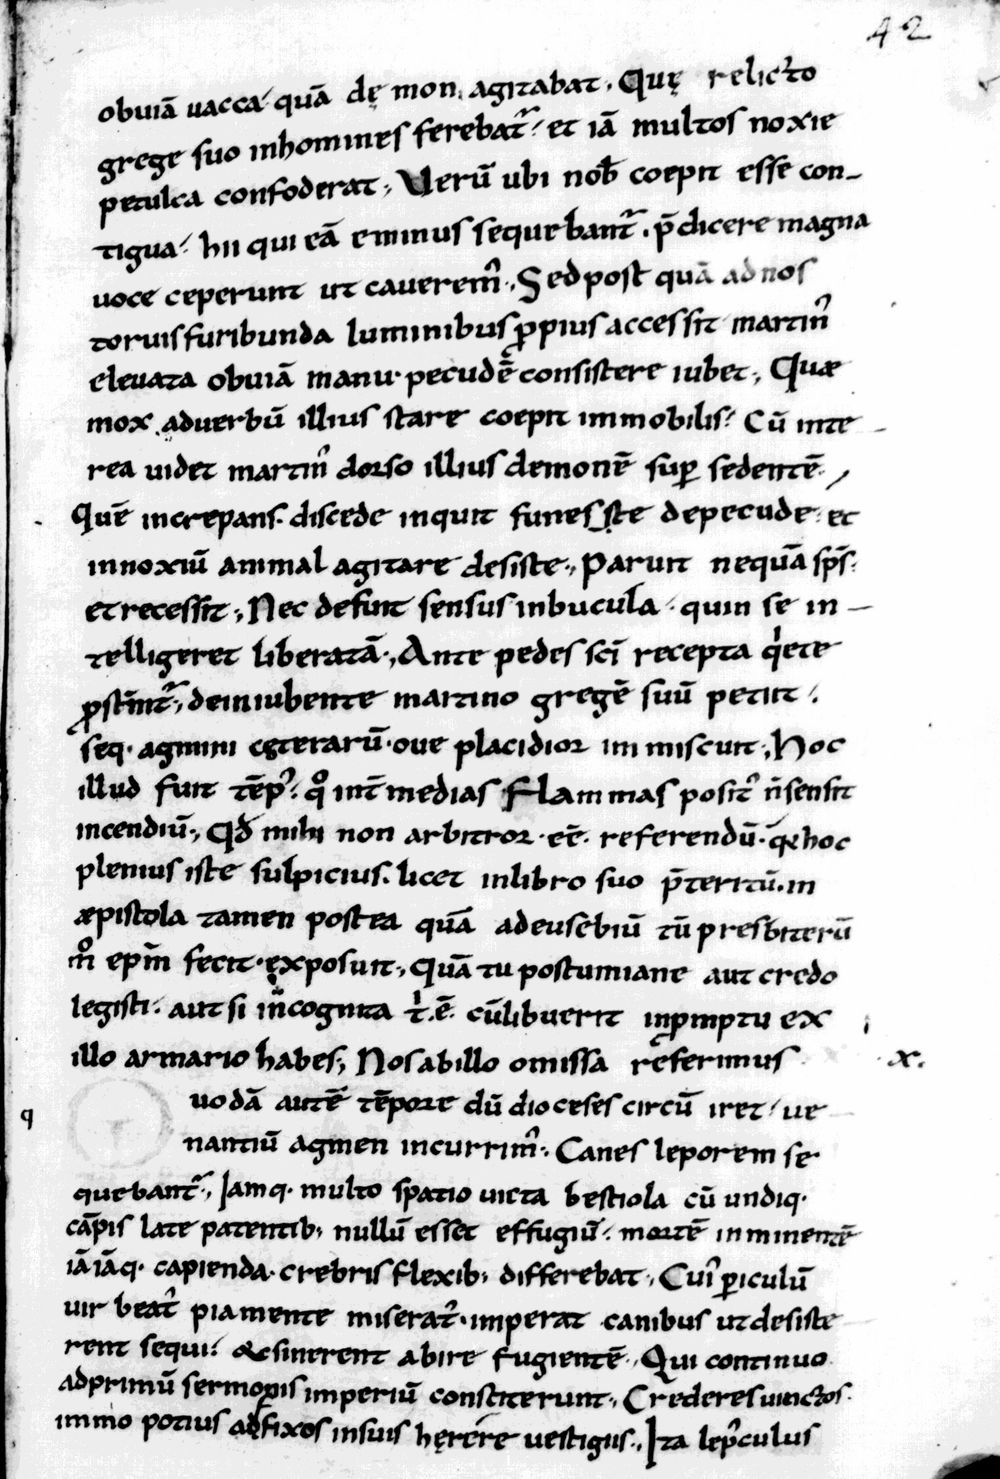 42
obuiā uacca quā dęmon agitabat. Quę relicto
grege suo inhomines ferebat᷑. et iā multos noxie
petulca confoderat. Uerū ubi nob̄ coepit esse con-
tigua. hii qui eā eminus sequebant᷑. p̄dicere magna
uoce ceperunt ut cauerem᷒. Sed post quā ad nos
toruis furibunda luminibus ꝓpius accessit martin᷒
eleuata obuiā manu. pecudē consistere iubet. Quæ
mox aduerbū illius stare coepit immobilis. Cū inte
rea uidet martin᷒ dorso illius demonē sup̄ sedentē.
Quē increpans. discede inquit funeste depecude. et
innoxiū animal agitare desiste. Paruit nequā sp̄s.
et recessit. Nec defunt sensus inbucula. quin se in-
telligeret liberatā. Ante pedes sc̄i recepta qͥete
ꝓst̄nit᷑. dein iubente martino gregē suū petiit.
seq. agmini cęterarū. oue placidior immiscuit. Hoc
illud fuit tēp᷒. qͦ int̄ medias flammas posit᷒ n̄ sensit
incendiū. Qd̄ mihi non arbitror. eē. referendū. q̄ hoc
plenius iste sulpicius. licet inlibro suo p̄teritū. in
æpistola tamen postea quā adeusebiū tū presbiterū
mͦ ep̄m fecit. exposuit. Quā tu postumiane aut credo
legisti. aut si incognita tͥ. ē. cū libuerit inpromptu ex
illo armario habes; Nos abillo omissa referimus
x.
q
uodā autē tēpore dū dioceses circū iret. ue
nantiū agmen incurrim᷒. Canes leporem se
quebant᷑. Iamq. multo spatio uicta bestiola cū undiq.
cāpis late patentib; nullū esset effugiū. mortē inminentē
iā iāq. capienda. crebris flexib; differebat. Cui᷒ periculū
uir beat᷒ pia mente miserat᷒. imperat canibus ut desiste
rent sequi. & sinerent abire fugientē. Qui continuo
adprimū sermonis imperiū constiterunt. Crederes uinctos.
immo potius adfixos insuis hęrere uestigiis. Ita lep᷒culus